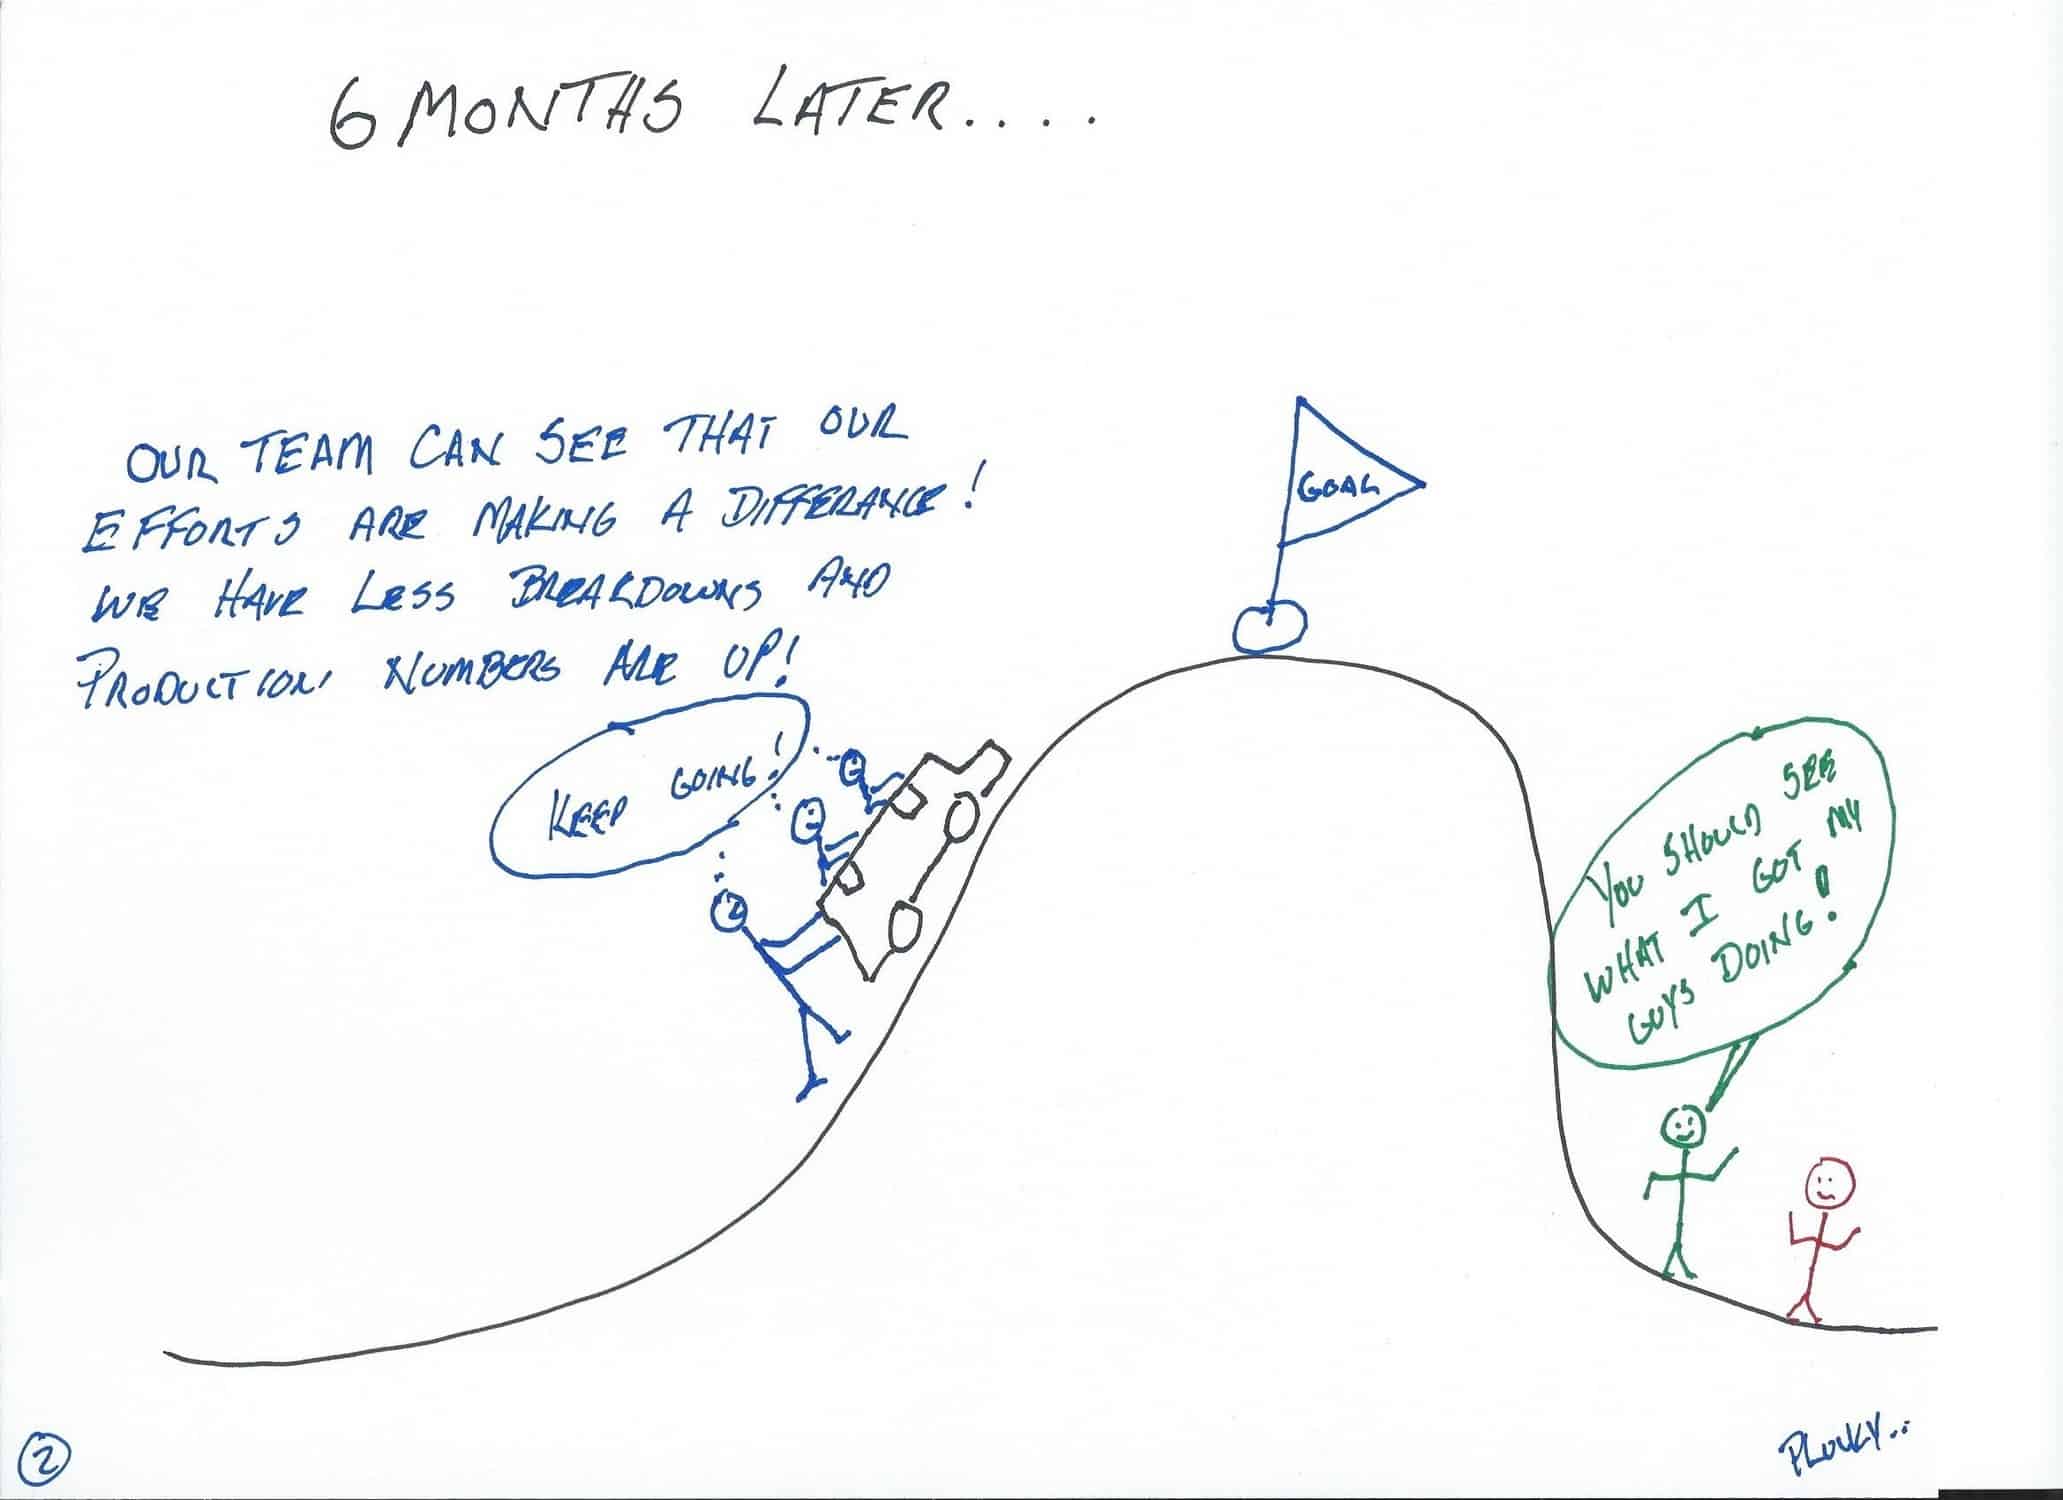 6 MONTHS LATER....
OUR TEAM CAN SEE THAT OUR
EFFORTS ARE MAKING A DIFFERANCE!
WE HAVE LESS BREAKDOWNS AND
PRODUCTION NUMBERS ARE UP!
KEEP GOING!
GOAL
YOU SHOULD SEE
WHAT I GOT MY
GUYS DOING!
2
PLOUKY..